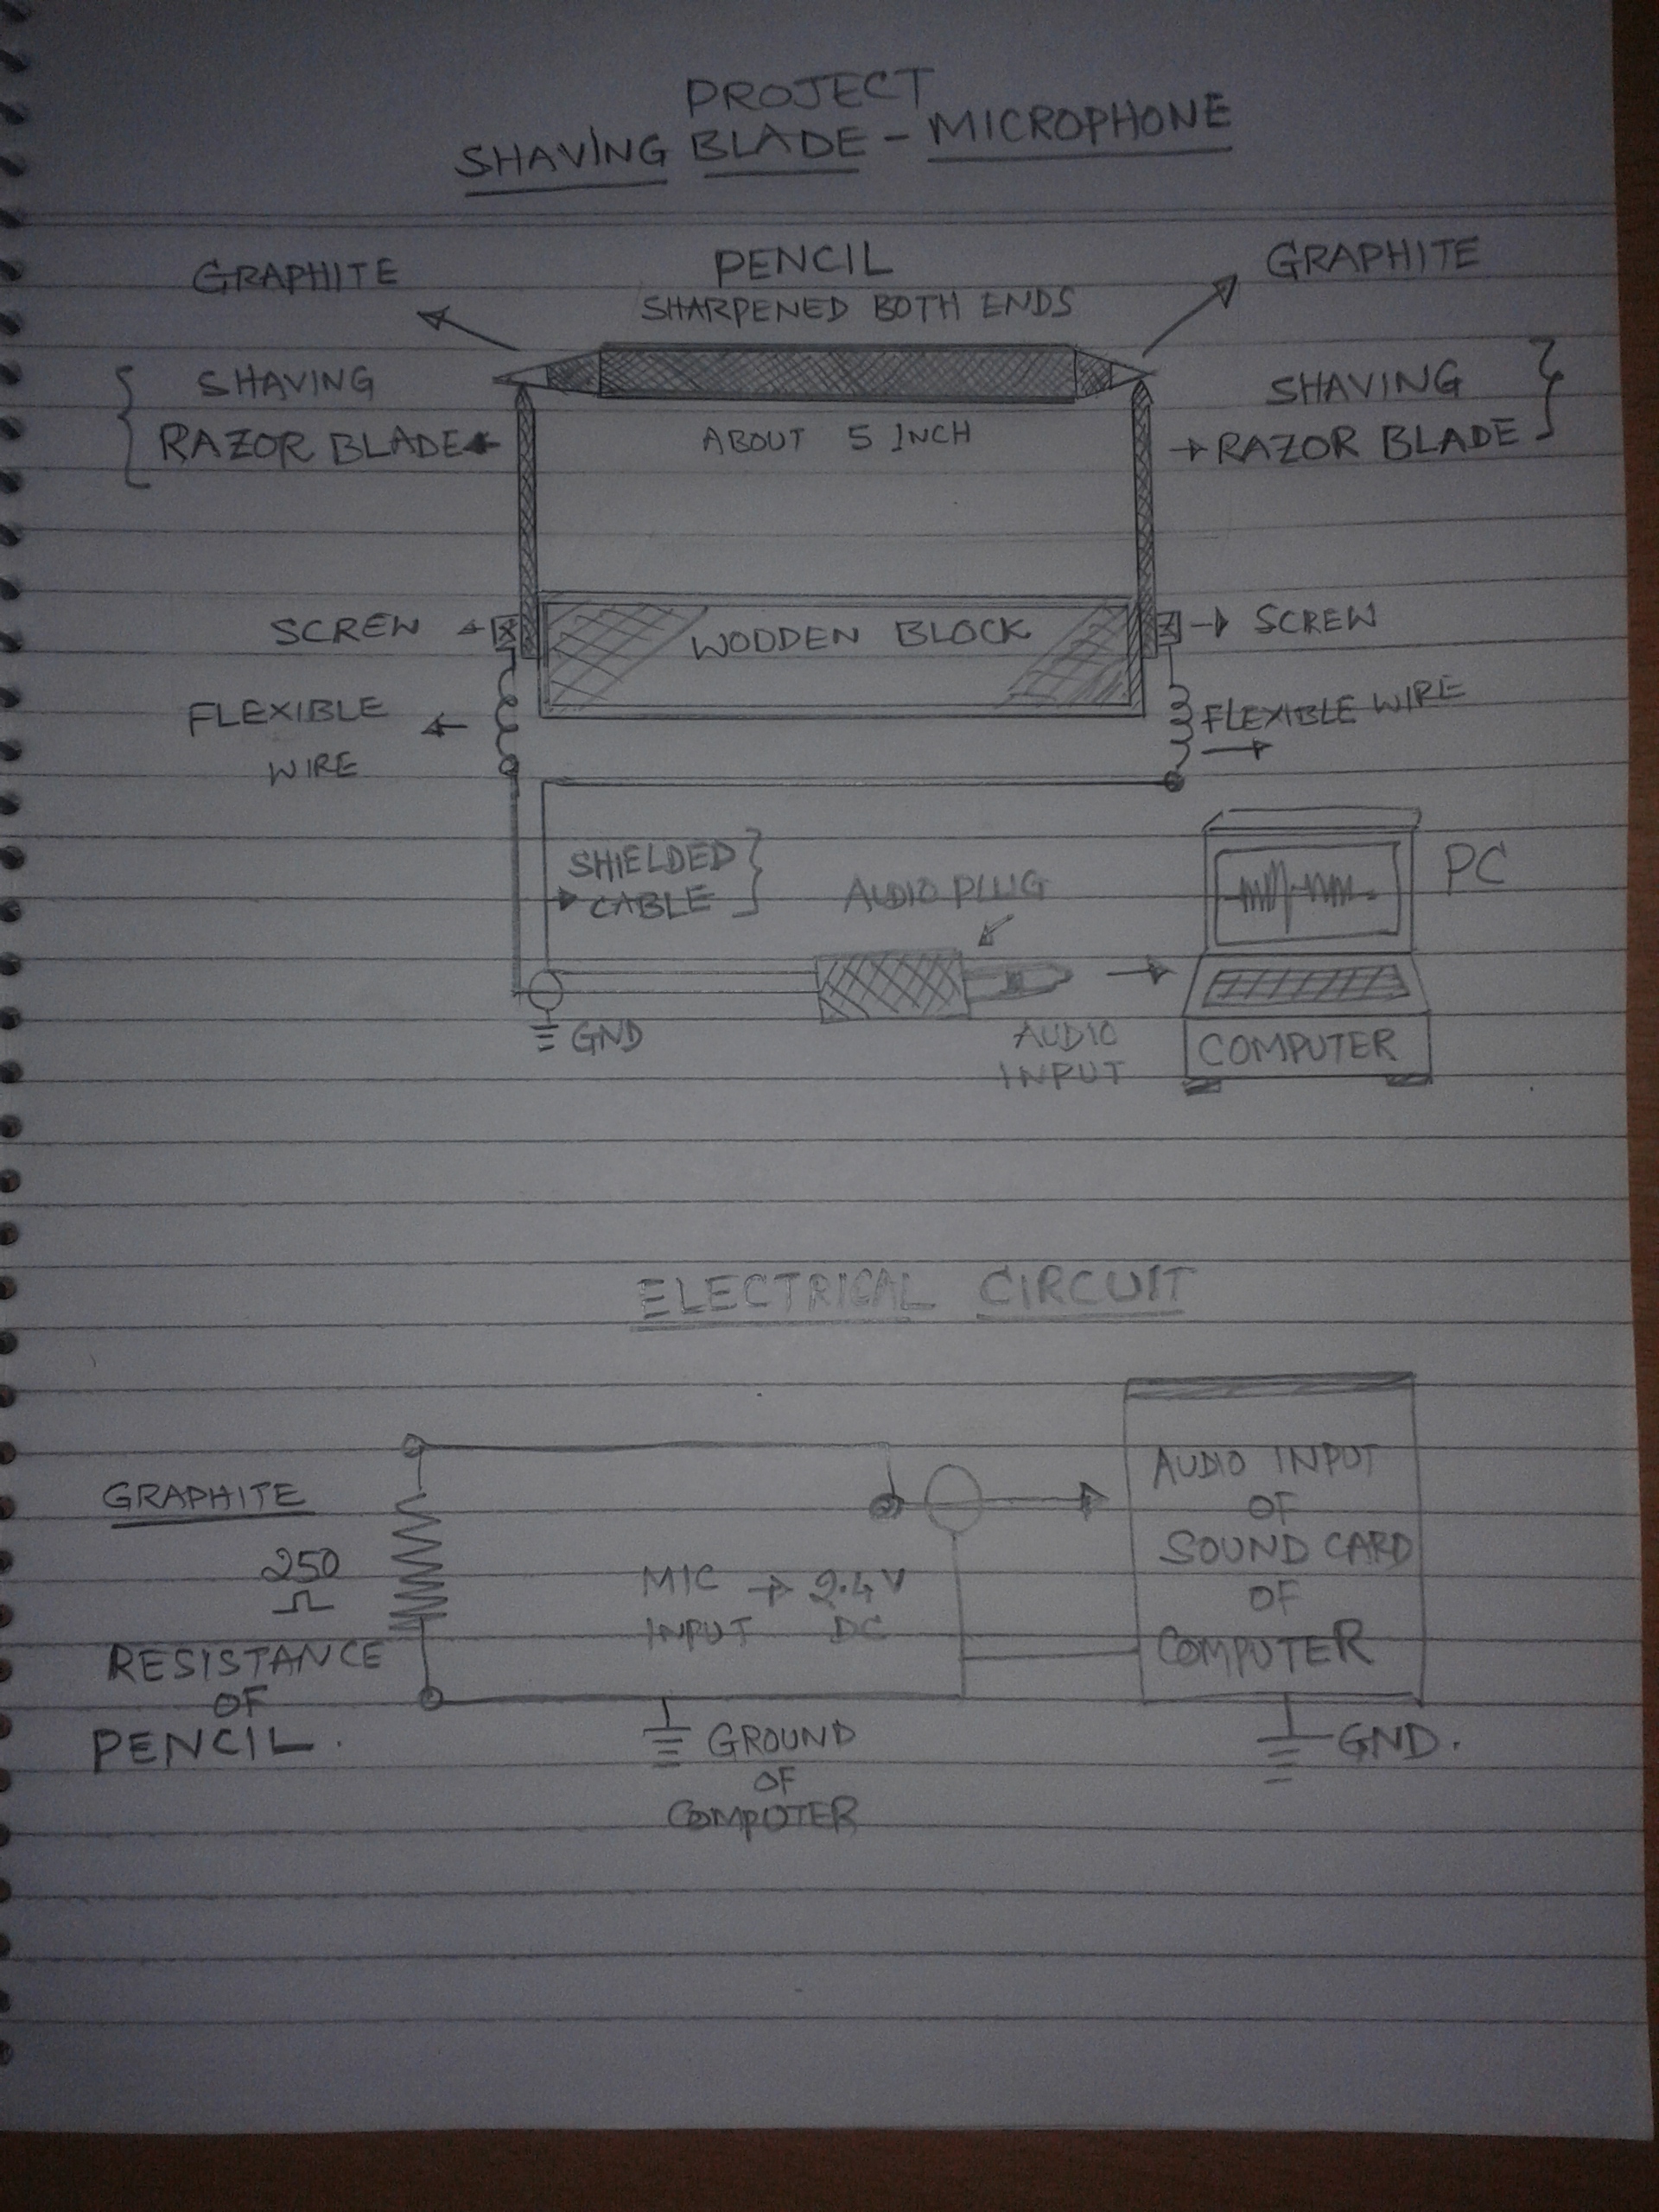 PROJECT
SHAVING BLADE - MICROPHONE
GRAPHITE
PENCIL
SHARPENED BOTH ENDS
GRAPHITE
SHAVING
RAZOR BLADE
ABOUT 5 INCH
SHAVING
RAZOR BLADE
SCREW
WOODEN BLOCK
SCREW
FLEXIBLE
WIRE
FLEXIBLE WIRE
SHIELDED
CABLE
AUDIO PLUG
PC
GND
AUDIO
INPUT
COMPUTER
ELECTRICAL CIRCUIT
GRAPHITE
250
Ω
RESISTANCE
OF
PENCIL.
MIC → 2.4V
INPUT DC
AUDIO INPUT
OF
SOUND CARD
OF
COMPUTER
GROUND
OF
COMPUTER
GND.